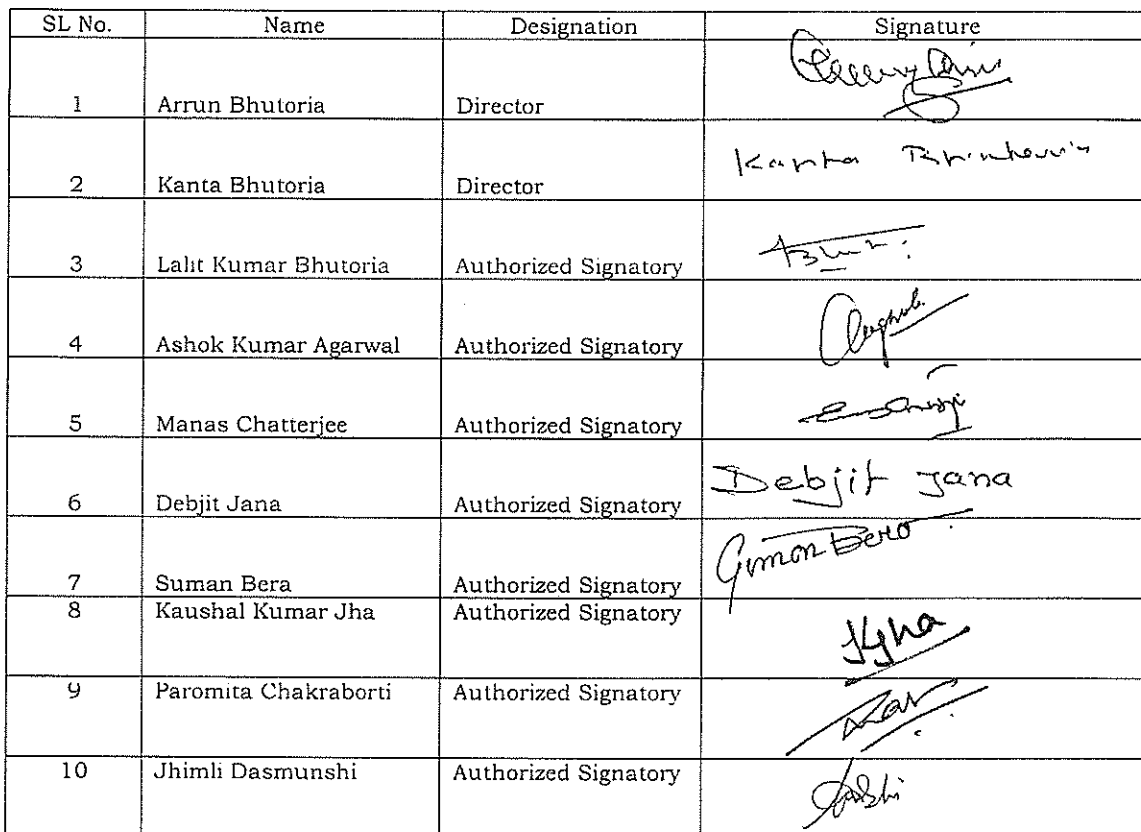 SL No. Name Designation Signature
1 Arrun Bhutoria Director
2 Kanta Bhutoria Director Kanta
3 Lalit Kumar Bhutoria Authorized Signatory
4 Ashok Kumar Agarwal Authorized Signatory
5 Manas Chatterjee Authorized Signatory
6 Debjit Jana Authorized Signatory Debjit Jana
7 Suman Bera Authorized Signatory Suman Bera
8 Kaushal Kumar Jha Authorized Signatory KJha
9 Paromita Chakraborti Authorized Signatory
10 Jhimli Dasmunshi Authorized Signatory